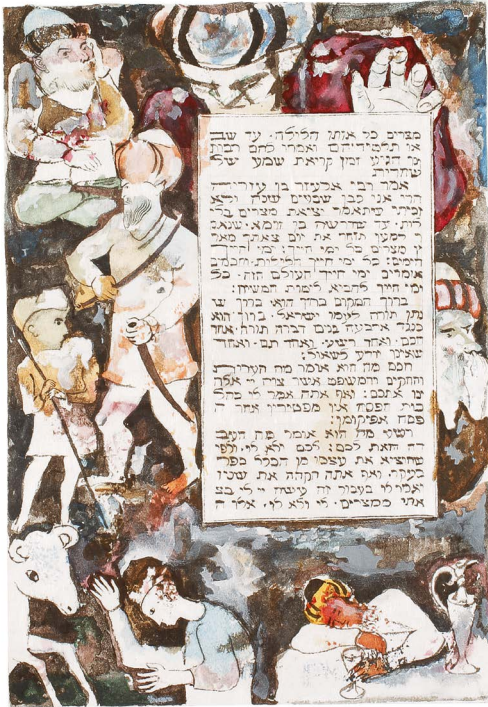 מצרים כל אותו הלילה. עד שב
או תלמידיהם ואמרו להם רבות
הגיע זמן קריאת שמע של
שחרית
אמר רבי אלעזר בן עזריה
הרי אני כבן שבעים שנה ולא
זכיתי שתאמר יציאת מצרים בלי
לות. עד שדרשה בן זומא. שנאמ
למען תזכר את יום צאתך מאר
ץ מצרים כל ימי חייך. ימי חייך
הימים. כל ימי חייך הלילות. וחכמים
אומרים ימי חייך העולם הזה. כל
ימי חייך להביא לימות המשיח:
ברוך המקום ברוך הוא. ברוך ש
נתן תורה לעמו ישראל. ברוך הוא
כנגד ארבעה בנים דברה תורה. אחד
חכם. ואחד רשע. ואחד תם. ואחד
שאינו יודע לשאול:
חכם מה הוא אומר מה העדות
והחקים והמשפטים אשר צוה יי אלה
ינו אתכם: ואף אתה אמר לו כהל
כות הפסח אין מפטירין אחר ה
פסח אפיקומן:
רשע מה הוא אומר מה העב
דה הזאת לכם: לכם ולא לו. ולפי
שהוציא את עצמו מן הכלל כפר
בעקר. ואף אתה הקהה את שניו
ואמר לו בעבור זה עשה יי לי בצ
אתי ממצרים. לי ולא לו. אלו ה